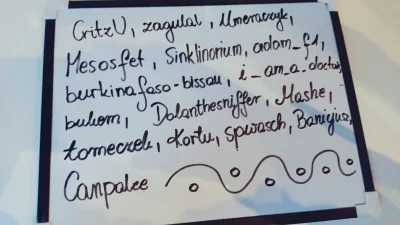 CritzU, zagulal, Umeraczyk,
Mesosfet, Sinklinorium, adam_f1,
burkinafaso-bissau, i_am_a_doctor,
bukom, Dalanthesniffer, Mashe,
tomeczek, Kortu, spwasch, Banicjusz,
Canpalee